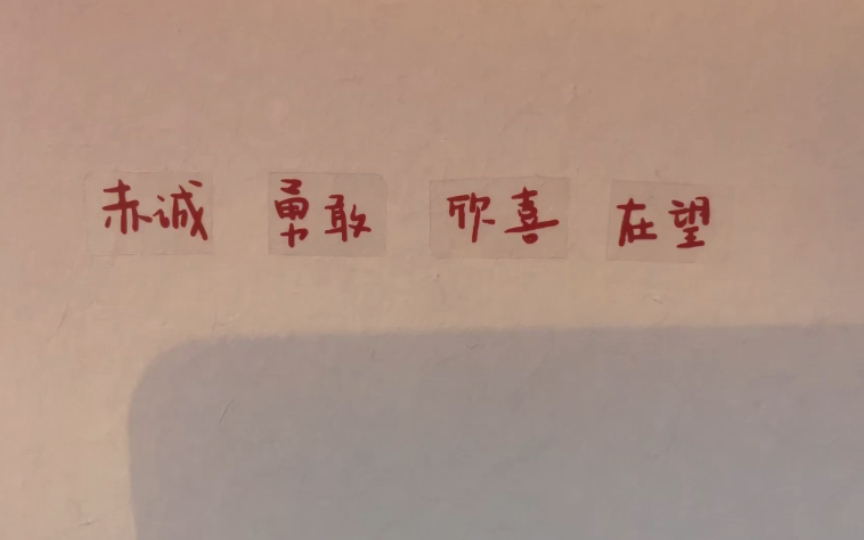 赤诚 勇敢 欣喜 在望